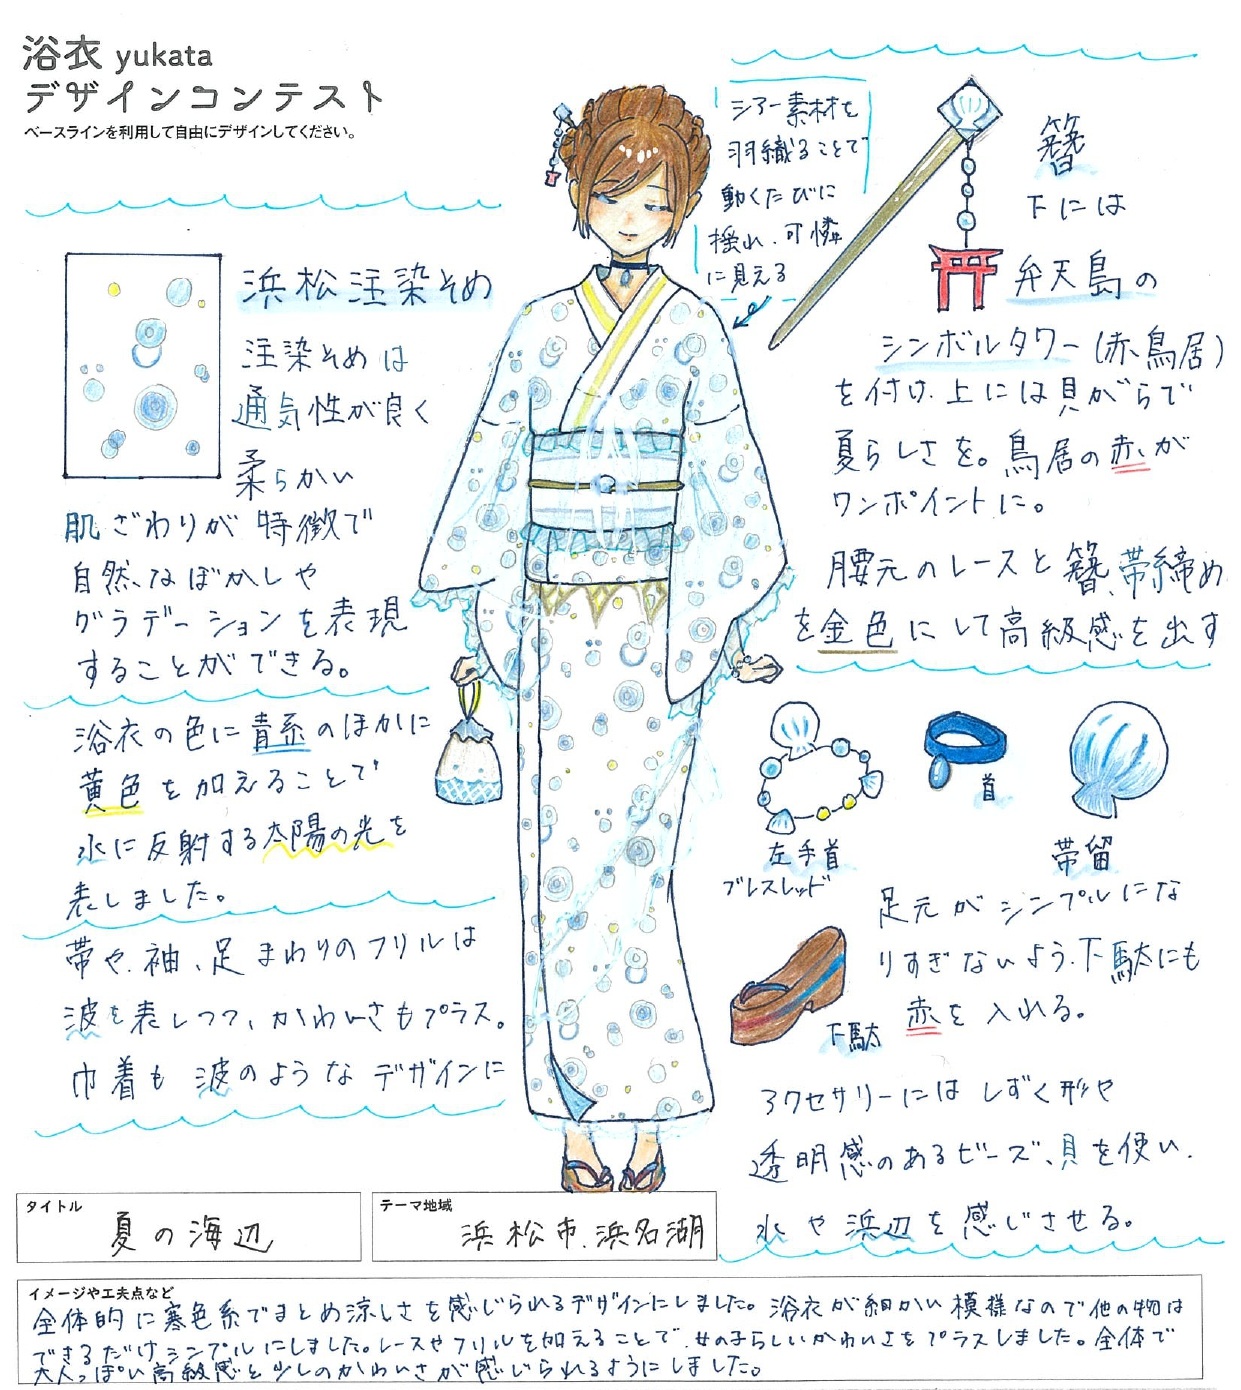 浴衣 yukata
デザインコンテスト
ベースラインを利用して自由にデザインしてください。
シアー素材を
羽織ることで
動くたびに
揺れ、可憐
に見える
簪
下には
弁天島の
シンボルタワー(赤鳥居)
を付け、上には貝がらで
夏らしさを。鳥居の赤が
ワンポイントに。
腰元のレースと簪、帯締め
を金色にして高級感を出す
浜松注染そめ
注染そめは
通気性が良く
柔らかい
肌ざわりが特徴で
自然なぼかしや
グラデーションを表現
することができる。
浴衣の色に青系のほかに
黄色を加えることで
水に反射する太陽の光を
表しました。
帯や、袖、足まわりのフリルは
波を表しつつ、かわいさもプラス。
巾着も波のようなデザインに
左手首
ブレスレッド
首
帯留
足元がシンプルにな
りすぎないよう、下駄にも
赤を入れる。
下駄
アクセサリーにはしずく形や
透明感のあるビーズ、貝を使い、
水や浜辺を感じさせる。
タイトル
夏の海辺
テーマ地域
浜松市、浜名湖
イメージや工夫点など
全体的に寒色系でまとめ涼しさを感じられるデザインにしました。浴衣が細かい模様なので他の物は
できるだけシンプルにしました。レースやフリルを加えることで、女の子らしいかわいさをプラスしました。全体で
大人っぽい高級感と少しのかわいさが感じられるようにしました。